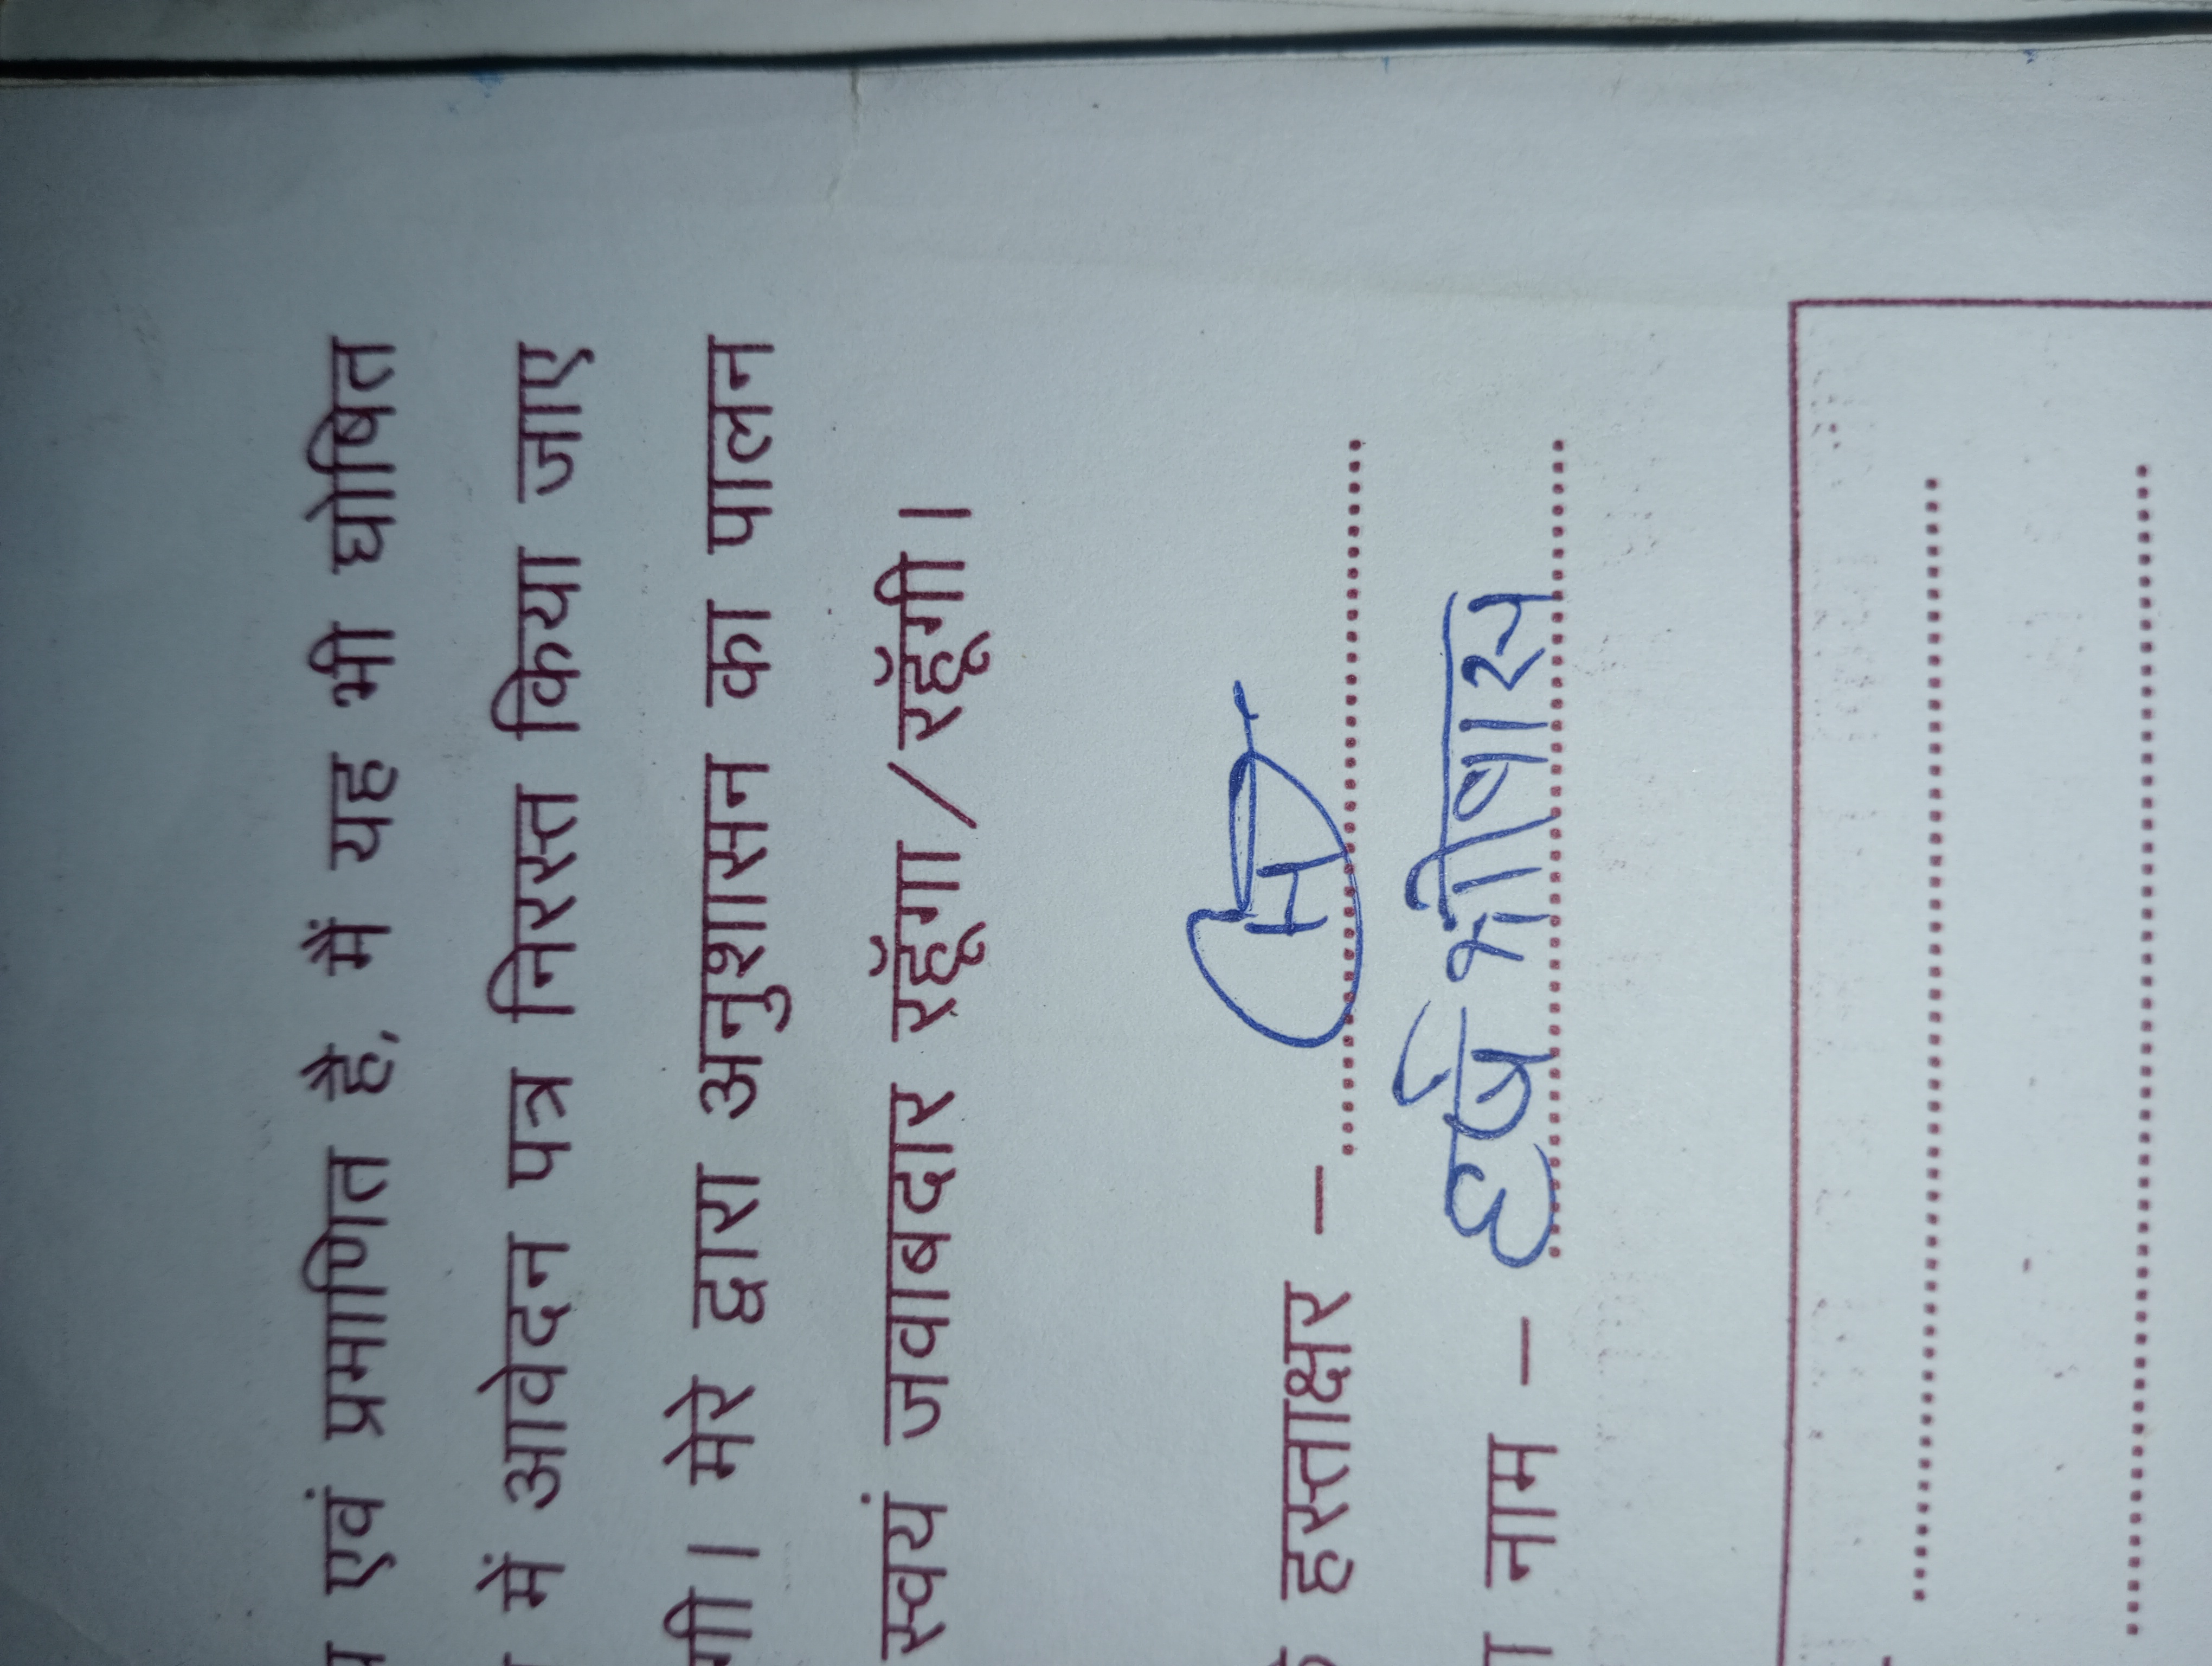 एवं प्रमाणित है, मैं यह भी घोषित
में आवेदन पत्र निरस्त किया जाए
गी। मेरे द्वारा अनुशासन का पालन
स्वयं जवाबदार रहूँगा/रहूँगी।
हस्ताक्षर -
नाम - हर्ष भीवास